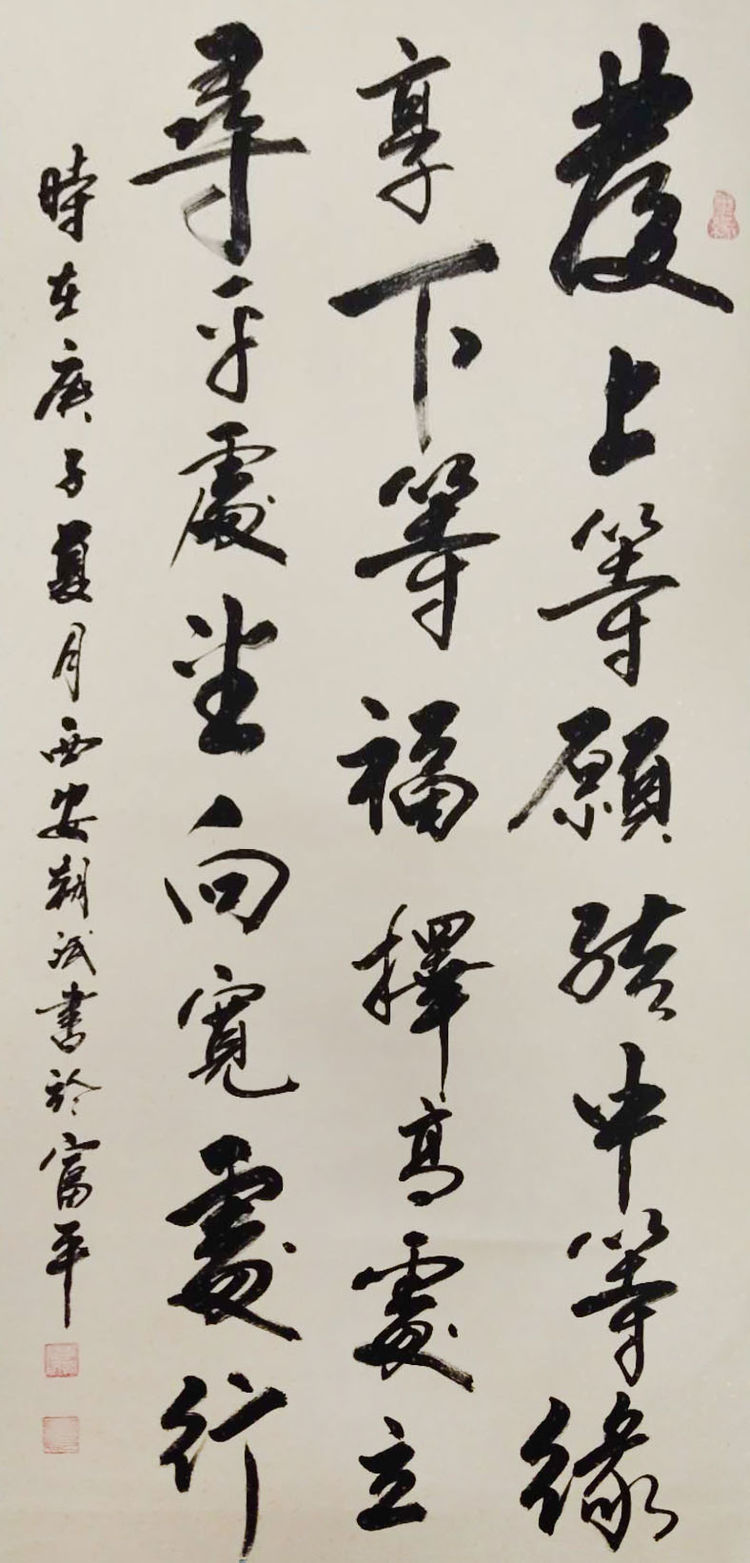 發上等願結中等緣
享下等福擇高處立
尋平處坐向寬處行
時在庚子夏月西安朝民書於富平